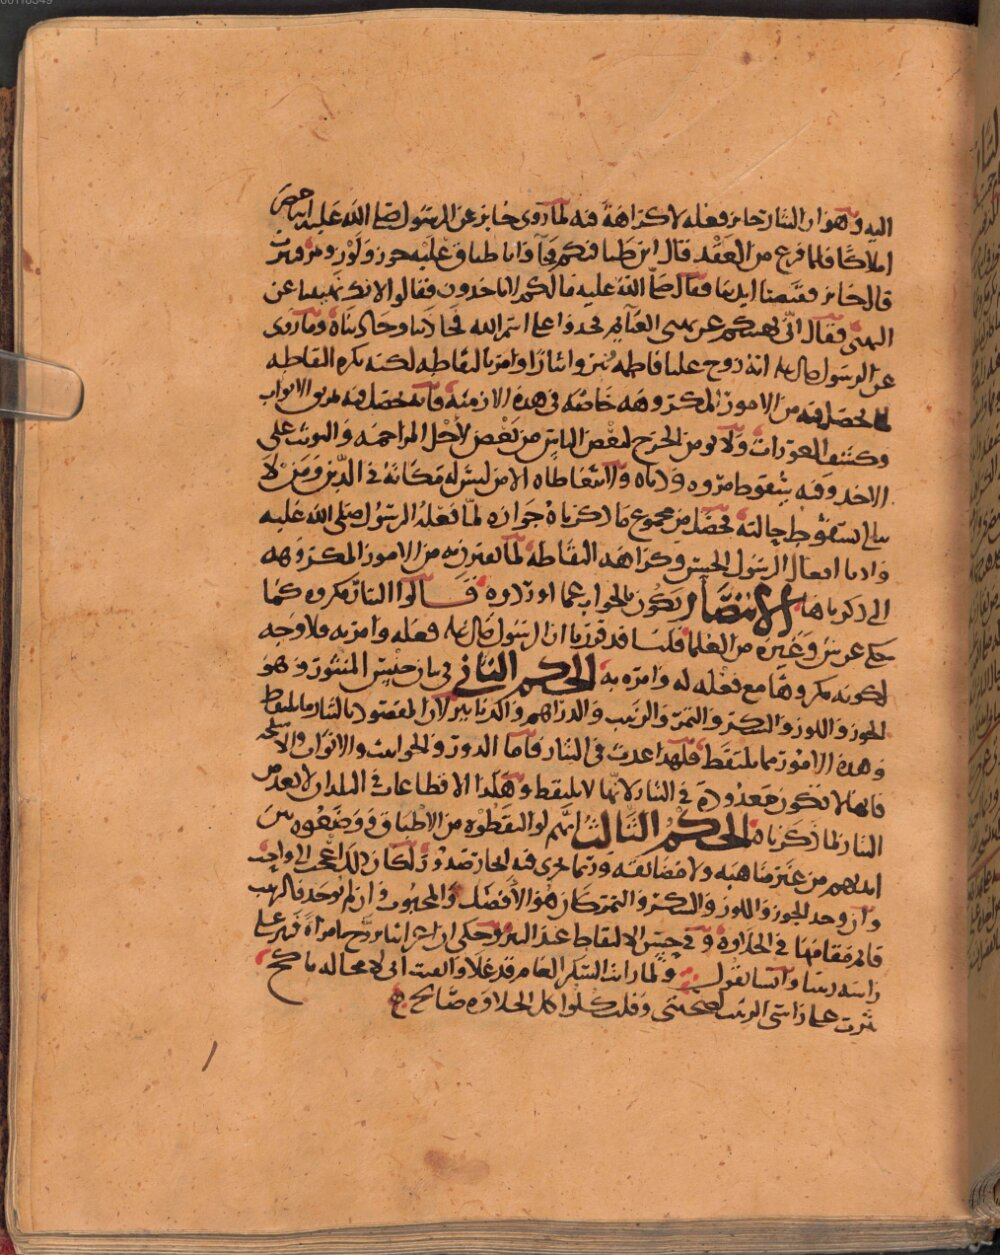 اليه وهو ان النثار جائز فعله لا كراهة فيه لما روى جابر عن الرسول صلى الله عليه انه حضر
املاكا فلما فرغ من العقد قال اين طباقكم فاتوا باطباق عليه جوز ولوز وتمر فنثرت
قال جابر فقبضنا ايدينا فقال صلى الله عليه مالكم لا تاخذون فقالوا لانك نهيتنا عن
النهبى فقال انى نهيتكم عن نهبى العساكر خذوا على اسم الله فجاذبنا وجاذبناه وما روى
عن الرسول صلى الله عليه انه زوج عليا فاطمة نثر وانثارا وامر بالتقاطه لكنه يكره التقاطه
لما يحصل فيه من الامور المكروهه خاصة فى هذه الازمنة فانه يحصل فيه تمزيق الاثواب
وكشف العورات ولا يومن الحرج لبعض الناس من بعض لاجل المزاحمه والتوثب على
الاخذ وفيه سقوط مروه ودناه ولا يتعاطاه الا من ليس له مكانة فى الدين ومن لا
يبالى بسقوط حالته فحصل من مجموع ما ذكرناه جوازه لما فعله الرسول صلى الله عليه
وادنا افعال الرسول الحسن وكراهه التقاطه لما يقترن به من الامور المكروهه
التى ذكرناها الانتصار يكون بالجواب عما اوردوه قالوا النثار مكروه كما
حكى عن وغيره من العلما قلنا قد قررنا ان الرسول صلى الله عليه فعله وامر به فلا وجه
لكونه مكروها مع فعله له وامره به الحكم الثانى فى بيان جنس المنثور وهو
الجوز واللوز والسكر والتمر والزبيب والدراهم والدنانير لان المقصود بالنثار ما يلتقط
وهذه الامور مما يلتقط فلهذا عدت فى النثار فاما الدور والحوانيت والاثواب والاسلحه
فانها لا تكون معدودة فى النثار لانها لا تلتقط وهكذا الاقطاعات فى البلدان لا تعد من
النثار لما ذكرناه الحكم الثالث انهم لو التقطوه من الاطباق ووضعوه بين
ايديهم من غير مناهبه ولا مضائقه وربما جرى فيه لكان ذلك اعجب الى واحب
وان وجد الجوز واللوز والسكر والتمر كان هو الافضل والمحبوب وان لم يوجد فالزبيب
قائم مقامها فى الحلاوه وفى جنس الالتقاط عند النثر وحكى ان اعرابيا تزوج بامراة فنثر على
راسه زبيبا وانشا يقول ولما رايت السكر العام قد غلا وايقنت انى لا محاله ناكح
نثرت على راسى الزبيب لصحبتى وقلت كلوا كل الحلاوه صالح